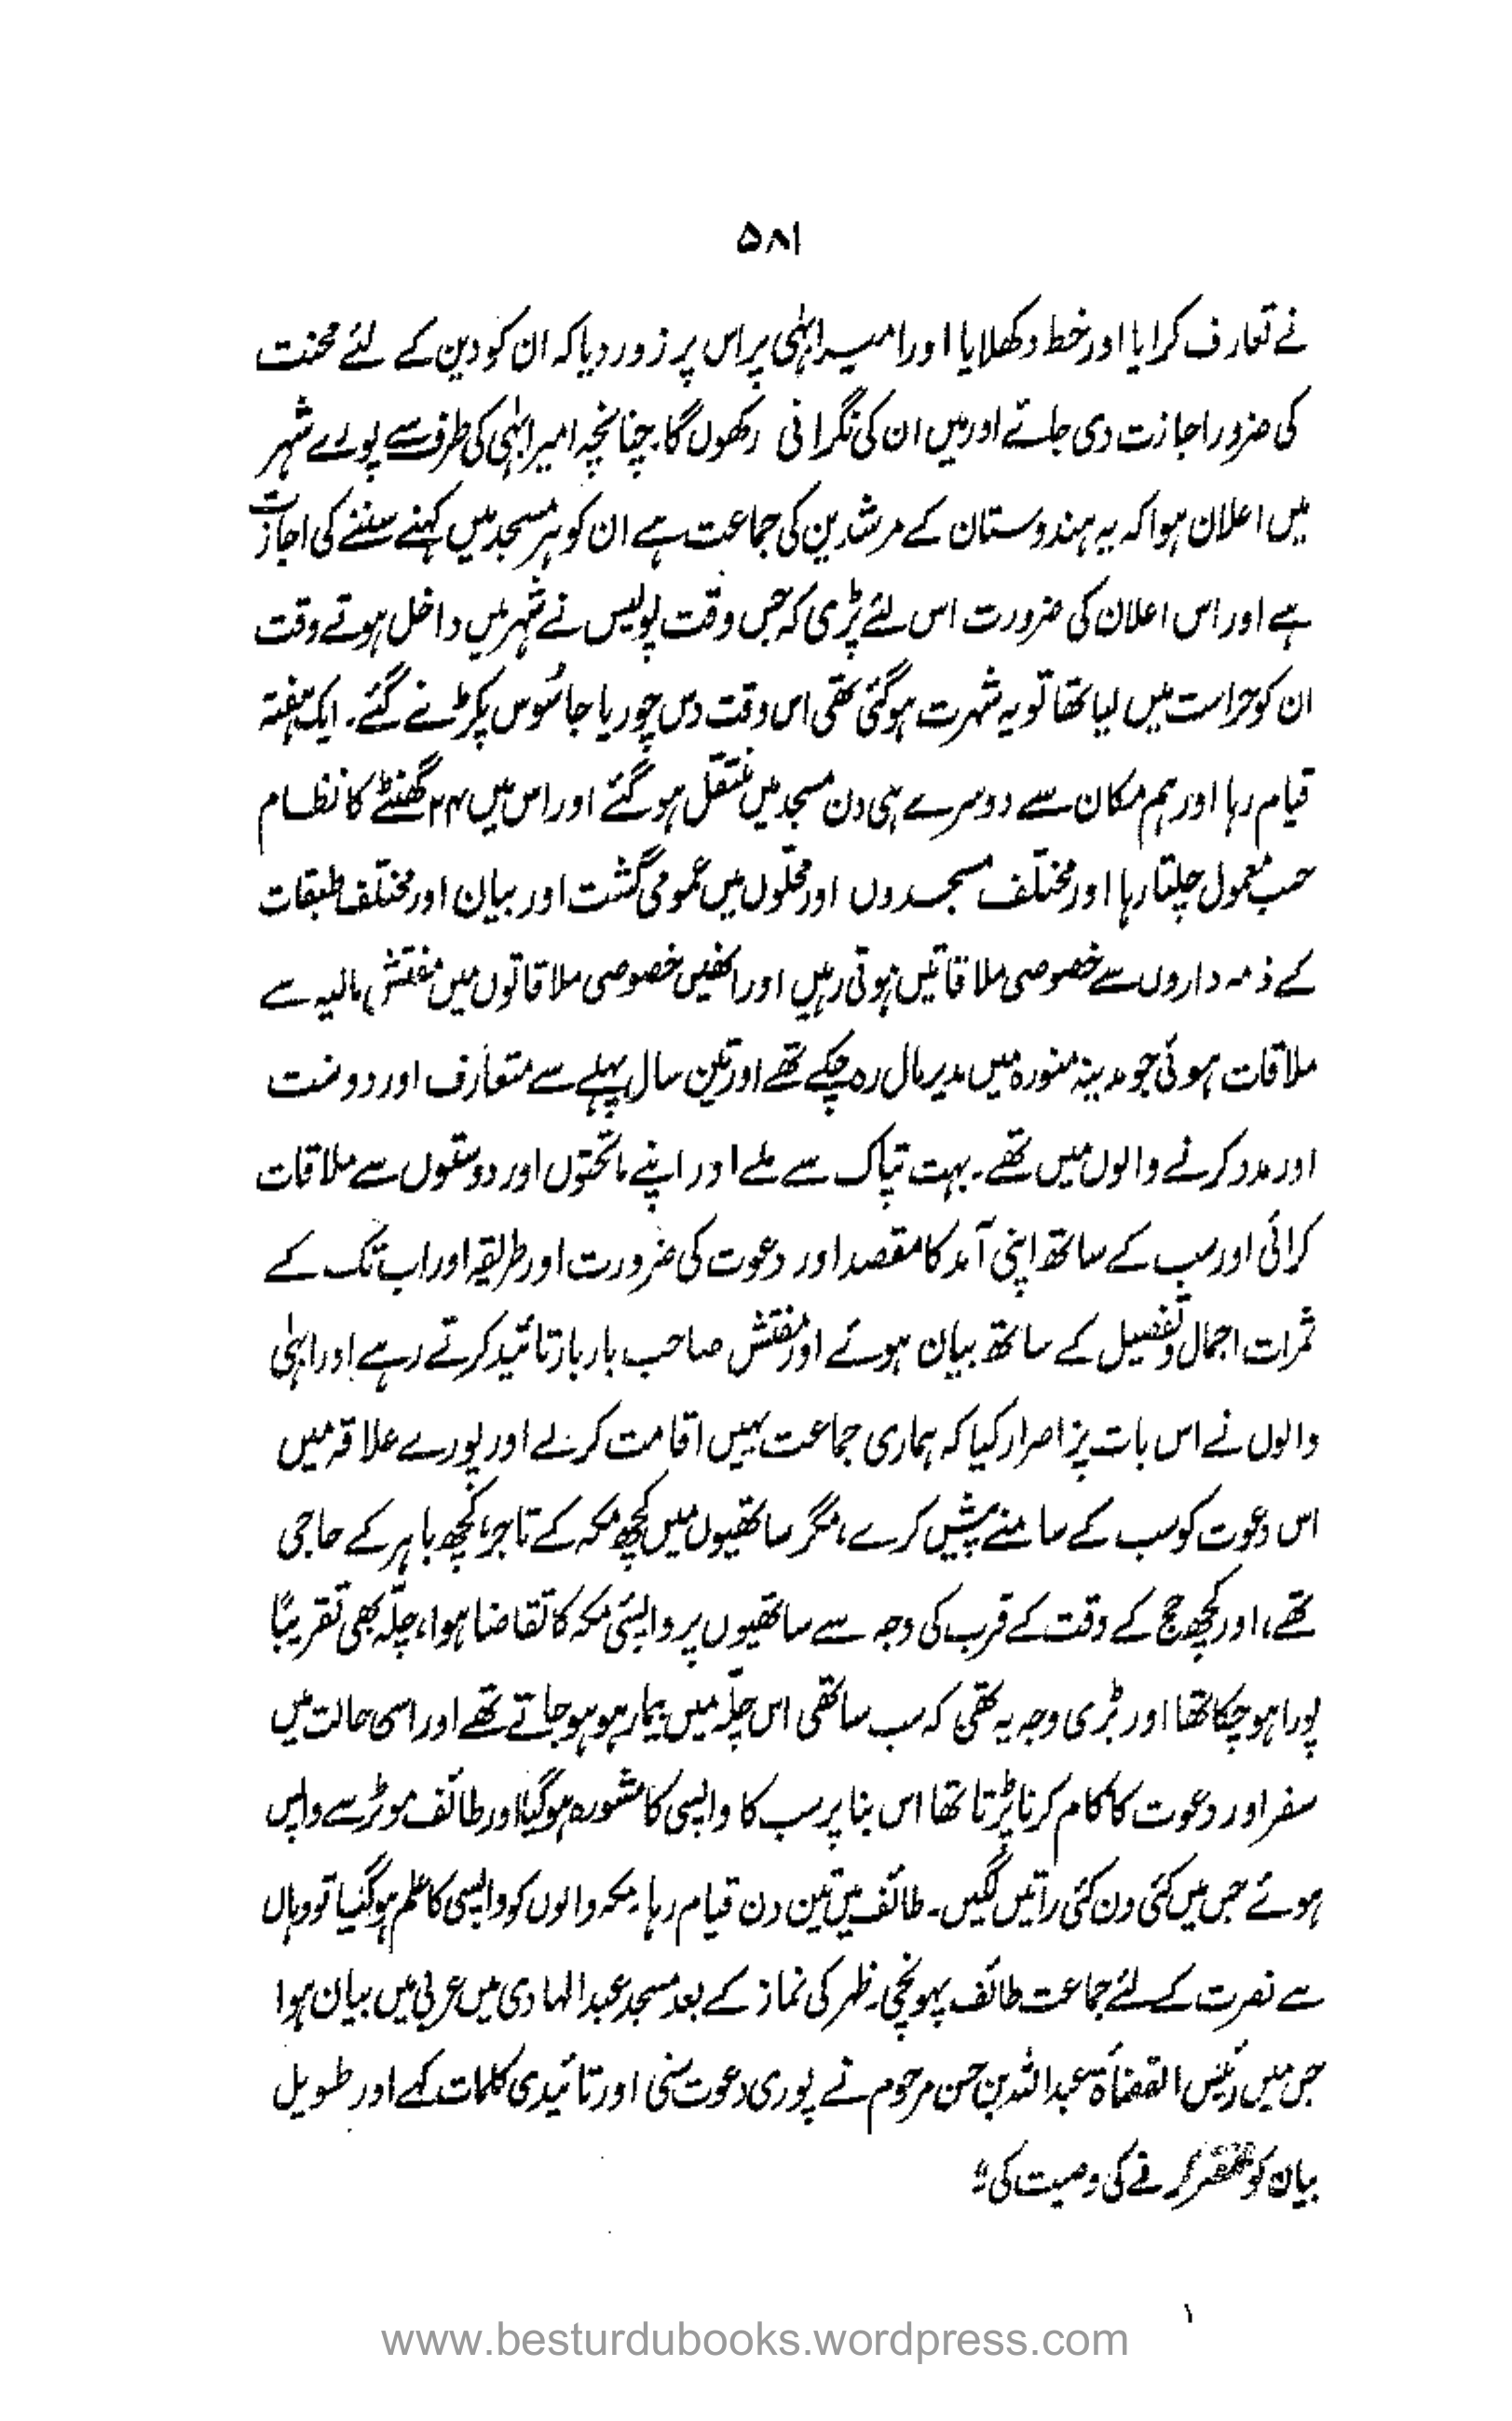 ۵۸۱
نے تعارف کرایا اور خط دکھلایا اور امیر ابہٰی پر اس پر زور دیا کہ ان کو دین کے لئے محنت
کی ضرور اجازت دی جائے اور میں ان کی نگرانی رکھوں گا۔ چنانچہ امیر ابہٰی کی طرف سے پورے شہر
میں اعلان ہوا کہ یہ ہندوستان کے مرشدین کی جماعت ہے ان کو ہر مسجد میں کہنے سننے کی اجازت
ہے اور اس اعلان کی ضرورت اس لئے پڑی کہ جس وقت پولیس نے شہر میں داخل ہوتے وقت
ان کو حراست میں لیا تھا تو یہ شہرت ہوگئی تھی اس وقت دس چور یا جاسُوس پکڑنے گئے۔ ایک ہفتہ
قیام رہا اور ہم مکان سے دوسرے ہی دن مسجد میں منتقل ہو گئے اور اس میں ۲۴ گھنٹے کا نظام
حسب معمول چلتا رہا اور مختلف مسجدوں اور محلّوں میں عمومی گشت اور بیان اور مختلف طبقات
کے ذمہ داروں سے خصوصی ملاقاتیں ہوتی رہیں اور انھیں خصوصی ملاقاتوں میں مفتش مالیہ سے
ملاقات ہوئی جو مدینہ منورہ میں مدیر مال رہ چکے تھے اور تین سال پہلے سے متعارف اور دوست
اور مدد کرنے والوں میں تھے۔ بہت تپاک سے ملے اور اپنے ماتحتوں اور دوستوں سے ملاقات
کرائی اور سب کے ساتھ اپنی آمد کا مقصد اور دعوت کی ضرورت اور طریقہ اور اب تک کے
ثمرات اجمال و تفصیل کے ساتھ بیان ہوئے اور مفتش صاحب بار بار تائید کرتے رہے اور ابہٰی
والوں نے اس بات پر اصرار کیا کہ ہماری جماعت یہیں اقامت کر لے اور پورے علاقہ میں
اس دعوت کو سب کے سامنے پیش کرے، مگر ساتھیوں میں کچھ مکہ کے تاجر، کچھ باہر کے حاجی
تھے، اور کچھ حج کے وقت کے قرب کی وجہ سے ساتھیوں پر واپسیٔ مکہ کا تقاضا ہوا، چلّہ بھی تقریبًا
پورا ہو چکا تھا اور بڑی وجہ یہ تھی کہ سب ساتھی اس چلّہ میں بیمار ہو ہو جاتے تھے اور اسی حالت میں
سفر اور دعوت کا کام کرنا پڑتا تھا اس بنا پر سب کا واپسی کا مشورہ ہوگیا اور طائف موٹر سے واپس
ہوئے جس میں کئی دن کئی راتیں لگیں۔ طائف میں تین دن قیام رہا۔ مکہ والوں کو واپسی کا علم ہوگیا تو وہاں
سے نصرت کے لئے جماعت طائف پہونچی۔ ظہر کی نماز کے بعد مسجد عبدالہادی میں عربی میں بیان ہوا
جس میں رئیس القضاۃ عبداللہ بن حسن مرحوم نے پوری دعوت سنی اور تائیدی کلمات کہے اور طویل
بیان کو مختصر کرنے کی وصیت کی"
۱
www.besturdubooks.wordpress.com